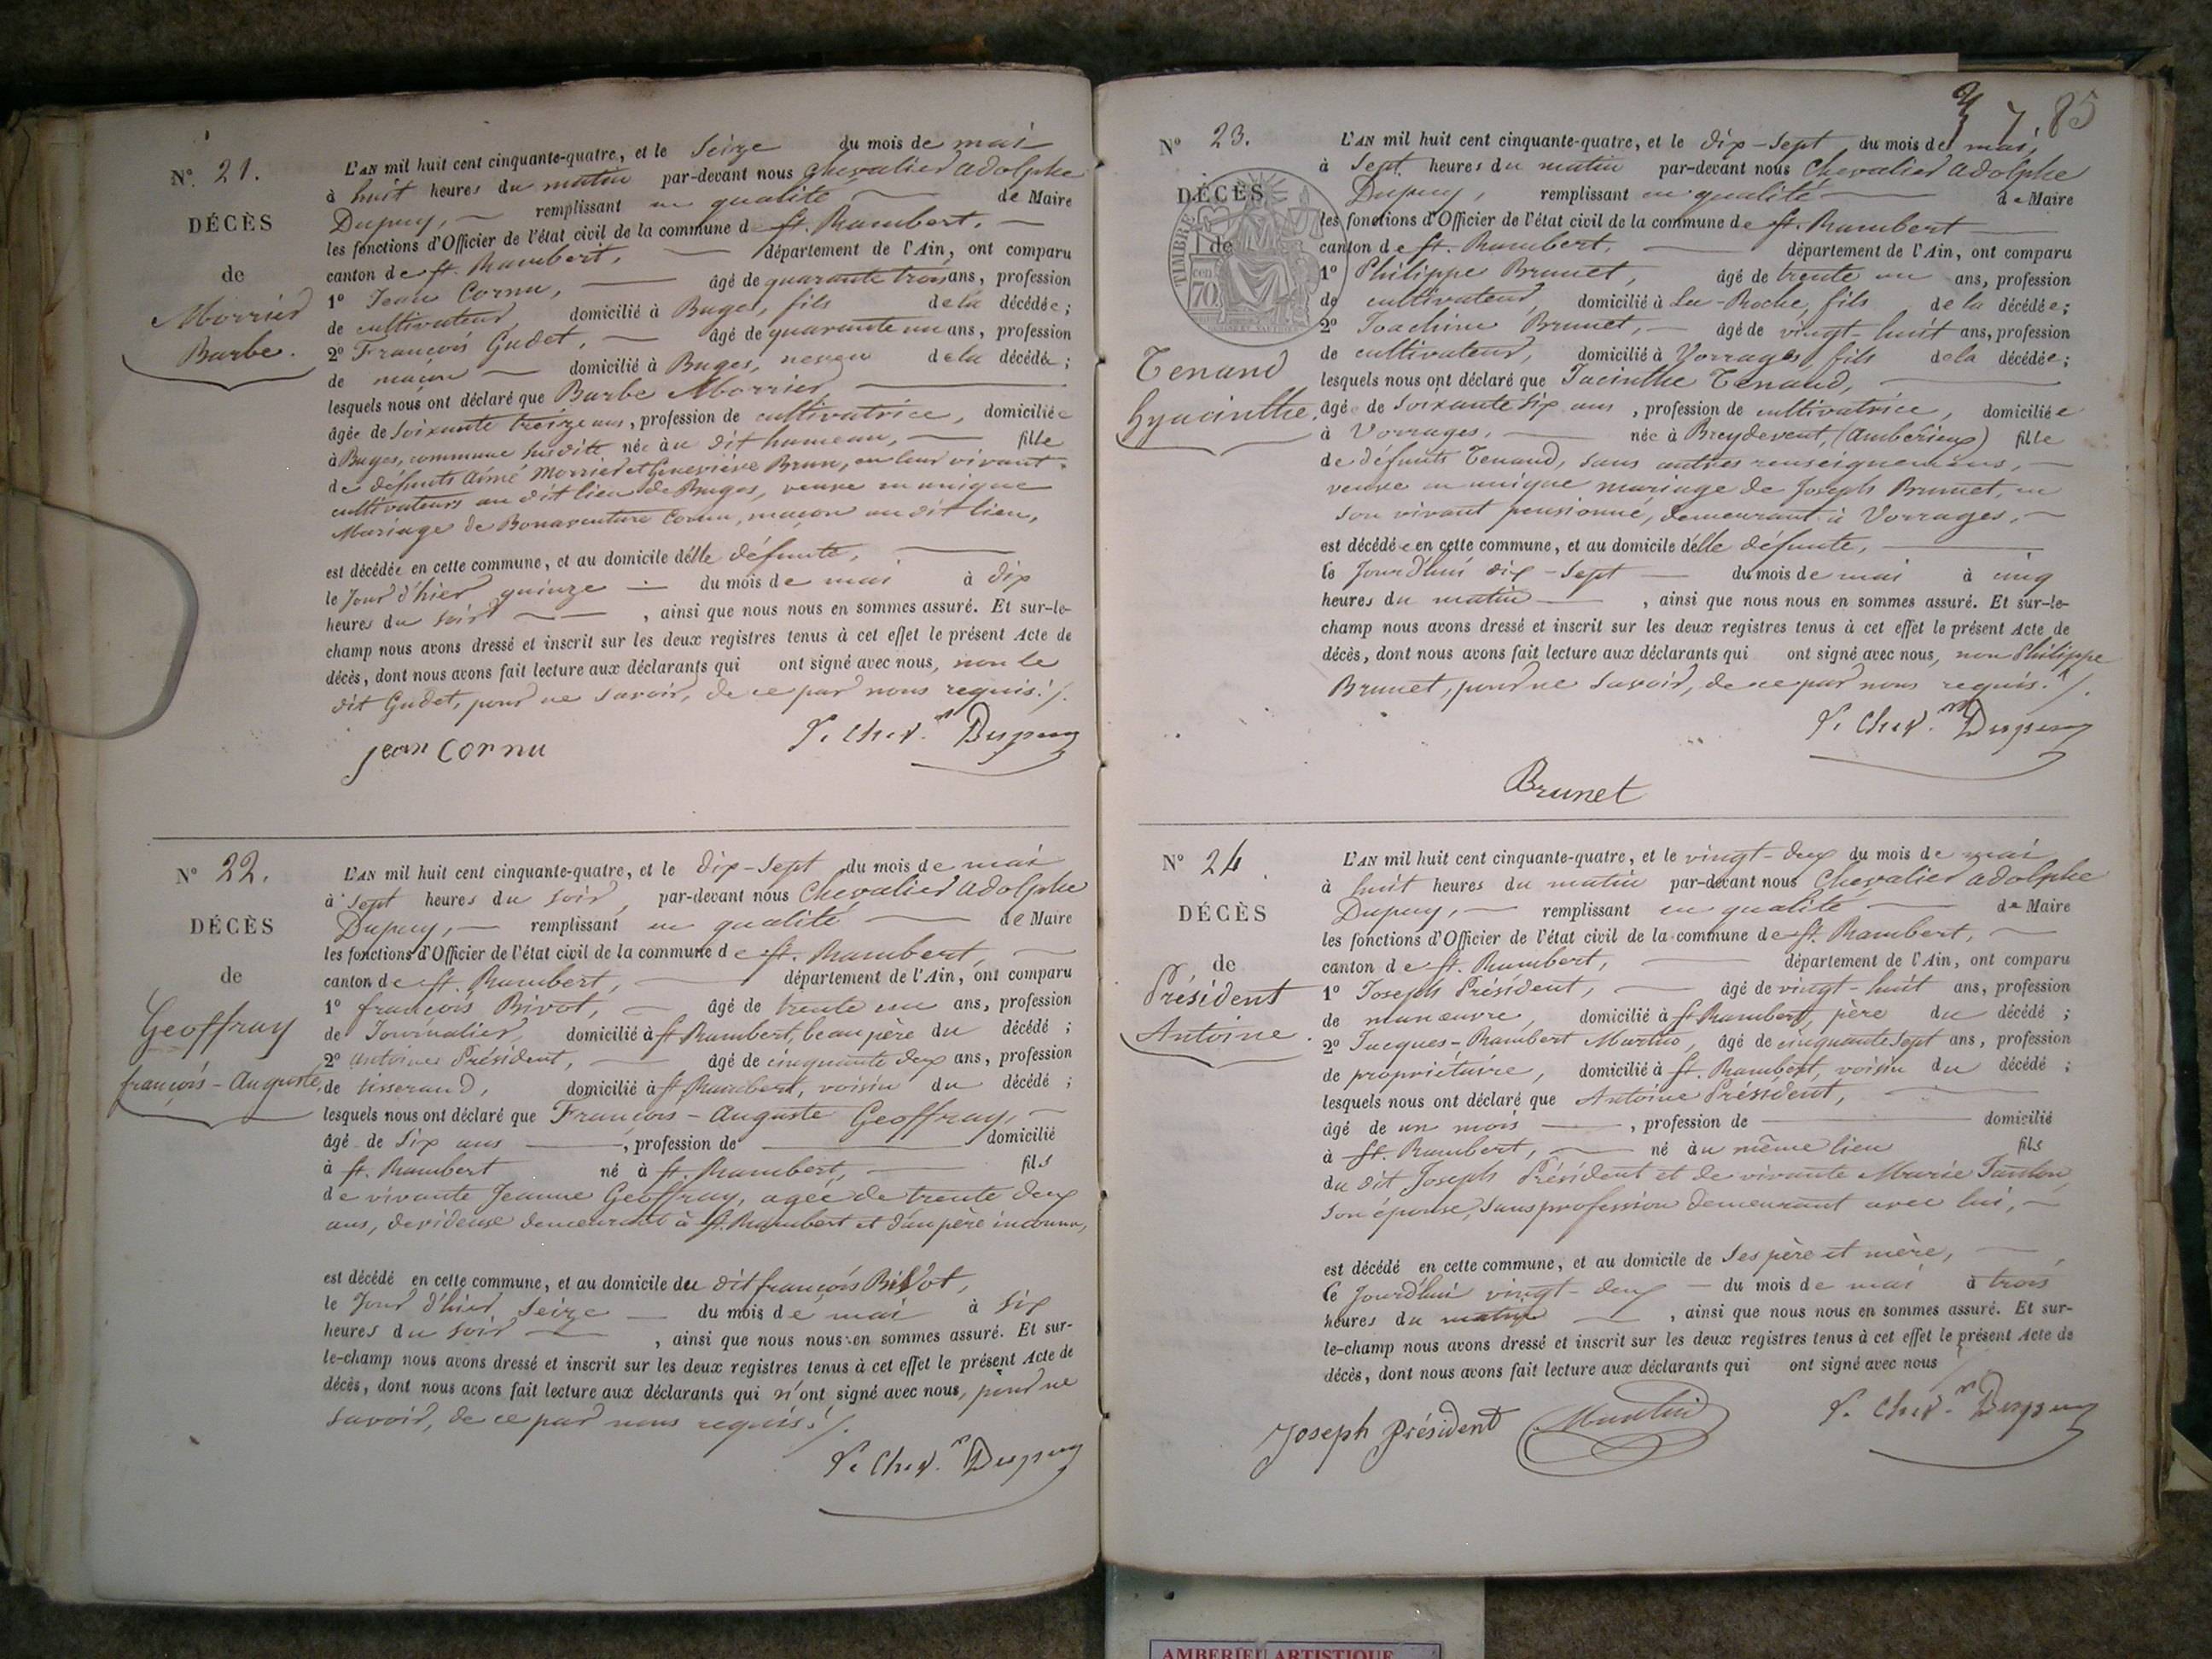 N° 21.
DÉCÈS
de
Morrier
Barbe.
L'AN mil huit cent cinquante-quatre, et le Seize du mois de mai
à huit heures du matin par-devant nous Chevalier Adolphe
Dupuy, remplissant en qualité de Maire
les fonctions d'Officier de l'état civil de la commune de St. Rambert.
canton de St. Rambert, département de l'Ain, ont comparu
1° Jean Cornu, âgé de quarante trois ans, profession
de cultivateur, domicilié à Buges, fils de la décédée;
2° François Gudet, âgé de quarante un ans, profession
de maçon domicilié à Buges, neveu de la décédée;
lesquels nous ont déclaré que Barbe Morrier,
âgée de soixante treize ans, profession de cultivatrice, domiciliée
à Buges, commune susdite née au dit hameau, fille
de défunts Aimé Morrier et Geneviève Brun, en leur vivant
cultivateurs au dit lieu de Buges, veuve en unique
Mariage de Bonaventure Cornu, maçon au dit lieu,
est décédée en cette commune, et au domicile d'elle défunte,
le Jour d'hier quinze du mois de mai à dix
heures du soir, ainsi que nous nous en sommes assuré. Et sur-le-
champ nous avons dressé et inscrit sur les deux registres tenus à cet effet le présent Acte de
décès, dont nous avons fait lecture aux déclarants qui ont signé avec nous, non le
dit Gudet, pour ne savoir, de ce par nous requis. /.
Jean Cornu
Chev. Dupuy
N° 22.
DÉCÈS
de
Geoffray
françois-Auguste.
L'AN mil huit cent cinquante-quatre, et le dix-Sept du mois de mai
à Sept heures du soir, par-devant nous Chevalier Adolphe
Dupuy, remplissant en qualité de Maire
les fonctions d'Officier de l'état civil de la commune de St. Rambert,
canton de St. Rambert, département de l'Ain, ont comparu
1° françois Bivot, âgé de trente un ans, profession
de Journalier, domicilié à St Rambert, beau père du décédé ;
2° Antoine Président, âgé de cinquante deux ans, profession
de tisserand, domicilié à St Rambert, voisin du décédé ;
lesquels nous ont déclaré que François-Auguste Geoffray,
âgé de Six ans, profession de domicilié
à St. Rambert né à St. Rambert, fils
de vivante Jeanne Geoffray, agée de trente deux
ans, devideuse demeurant à St. Rambert et d'un père inconnu,
est décédé en cette commune, et au domicile du dit françois Bivot,
le Jour d'hier Seize du mois de mai à Six
heures du soir, ainsi que nous nous en sommes assuré. Et sur-
le-champ nous avons dressé et inscrit sur les deux registres tenus à cet effet le présent Acte de
décès, dont nous avons fait lecture aux déclarants qui n'ont signé avec nous, pour ne
savoir, de ce par nous requis. /.
Chev. Dupuy
7 85
N° 23.
DÉCÈS
de
TIMBRE
cen
70
Tenand
hyacinthe.
L'AN mil huit cent cinquante-quatre, et le dix-Sept du mois de mai,
à Sept. heures du matin par-devant nous Chevalier Adolphe
Dupuy, remplissant en qualité de Maire
les fonctions d'Officier de l'état civil de la commune de St. Rambert
canton de St. Rambert, département de l'Ain, ont comparu
1° Philippe Brunet, âgé de trente un ans, profession
de cultivateur, domicilié à La-Roche, fils de la décédée;
2° Joachim Brunet, âgé de vingt-huit ans, profession
de cultivateur, domicilié à Vorrages, fils de la décédée;
lesquels nous ont déclaré que Jacinthe Tenand,
âgé de soixante six ans, profession de cultivatrice, domiciliée
à Vorrages, née à Breydevent, (Ambérieux) fille
de défunts Tenand, sans autres renseignemens,
veuve en unique mariage de Joseph Brunet, en
son vivant pensionné, demeurant à Vorrages,
est décédée en cette commune, et au domicile d'elle défunte,
le Jourd'hui dix-Sept du mois de mai à cinq
heures du matin, ainsi que nous nous en sommes assuré. Et sur-le-
champ nous avons dressé et inscrit sur les deux registres tenus à cet effet le présent Acte de
décès, dont nous avons fait lecture aux déclarants qui ont signé avec nous, non Philippe
Brunet, pour ne savoir, de ce par nous requis. /.
Chev. Dupuy
Brunet
N° 24.
DÉCÈS
de
Président
Antoine.
L'AN mil huit cent cinquante-quatre, et le vingt-deux du mois de mai
à huit heures du matin par-devant nous Chevalier Adolphe
Dupuy, remplissant en qualité de Maire
les fonctions d'Officier de l'état civil de la commune de St. Rambert,
canton de St. Rambert, département de l'Ain, ont comparu
1° Joseph Président, âgé de vingt-huit ans, profession
de manœuvre, domicilié à St Rambert, père du décédé ;
2° Jacques-Rambert Martin, âgé de cinquante sept ans, profession
de propriétaire, domicilié à St. Rambert, voisin du décédé ;
lesquels nous ont déclaré que Antoine Président,
âgé de un mois, profession de domicilié
à St. Rambert, né au même lieu fils
du dit Joseph Président et de vivante Marie
son épouse, sans profession demeurant avec lui,
est décédé en cette commune, et au domicile de Ses père et mère,
le Jourd'hui vingt-deux du mois de mai à trois
heures du matin, ainsi que nous nous en sommes assuré. Et sur-
le-champ nous avons dressé et inscrit sur les deux registres tenus à cet effet le présent Acte de
décès, dont nous avons fait lecture aux déclarants qui ont signé avec nous
Joseph Président
Martin
Chev. Dupuy
AMBERIEU ARTISTIQUE